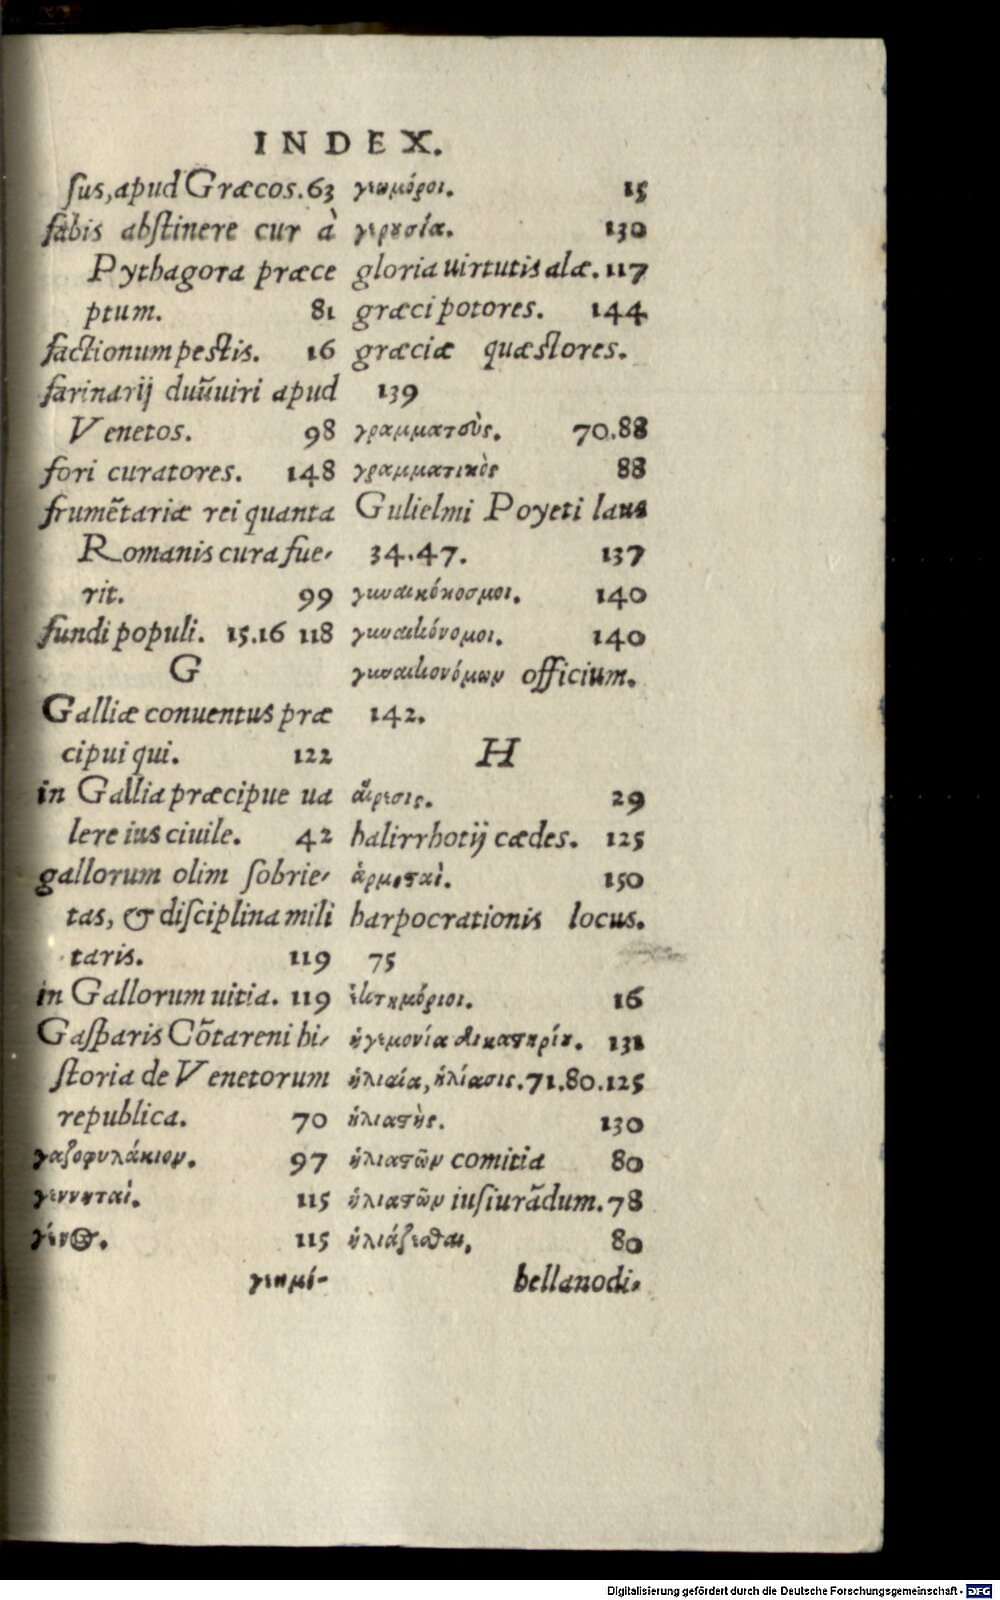 INDEX.
ſus, apud Græcos. 63
fabis abſtinere cur à
Pythagora præce
ptum. 81
factionum peſtis. 16
farinarij duũuiri apud
Venetos. 98
fori curatores. 148
frumẽtariæ rei quanta
Romanis cura fue-
rit. 99
fundi populi. 15.16 118
G
Galliæ conuentus præ
cipui qui. 122
in Gallia præcipue ua
lere ius ciuile. 42
gallorum olim ſobrie-
tas, & diſciplina mili
taris. 119
in Gallorum uitia. 119
Gaſparis Cõtareni hi-
ſtoria de Venetorum
republica. 70
γαζοφυλάκιον. 97
γεννηταὶ. 115
γέν⸱. 115
γεωμό-
γεωμόροι. 15
γερουσία. 130
gloria uirtutis alæ. 117
græci potores. 144
græciæ quæſtores.
139
γραμματεὺς. 70.88
γραμματικὸς 88
Gulielmi Poyeti laus
34.47. 137
γυναικόκοσμοι. 140
γυναικόνομοι. 140
γυναικονόμων officium.
142.
H
αἵρεσις. 29
halirrhotij cædes. 125
ἁρμοσταὶ. 150
harpocrationis locus.
75
ἑκτημόριοι. 16
ἡγεμονία δικαστηρίων. 131
ἡλιαία, ἡλίασις. 71.80.125
ἡλιαστὴς. 130
ἡλιαστῶν comitia 80
ἡλιαστῶν iuſiurãdum. 78
ἡλιάζεσθαι, 80
hellanodi-
Digitalisierung gefördert durch die Deutsche Forschungsgemeinschaft - DFG